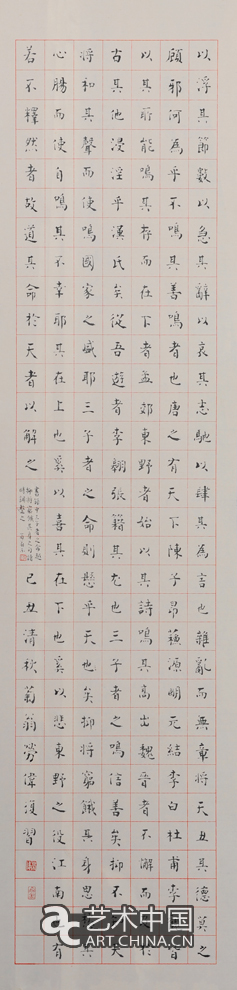 以浮其節數以急其辭以哀其志馳以肆其為言也雜亂而無章將天丑其德莫之
顧邪何為乎不鳴其善鳴者也唐之有天下陳子昂蘇源明元結李白杜甫李
以其所能鳴其存而在下者孟郊東野者始以其詩鳴其高出魏晉者不解而
古其他浸淫乎漢氏矣從吾遊者李翱張籍其尤也三子者之鳴信善矣抑不
將和其聲而使鳴國家之盛耶三子者之命則懸乎天也矣抑將窮餓其身思
心腸而使自鳴其不幸耶其在上也奚以喜其在下也奚以悲東野之役江南有
若不釋然者故道其命於天者以解之
己丑清秋菊翁勞偉漫習
艺术中国
ART.CHINA.CN